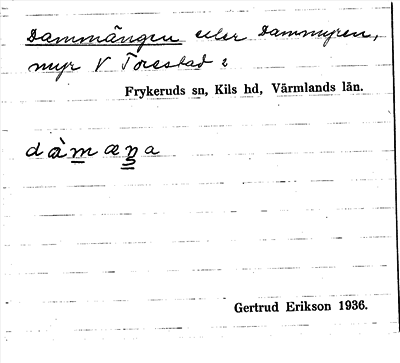 Dammängen eller Dammyren,
myr V Torestad 2
Frykeruds sn, Kils hd, Värmlands län.
dàm æŋa
Gertrud Erikson 1936.